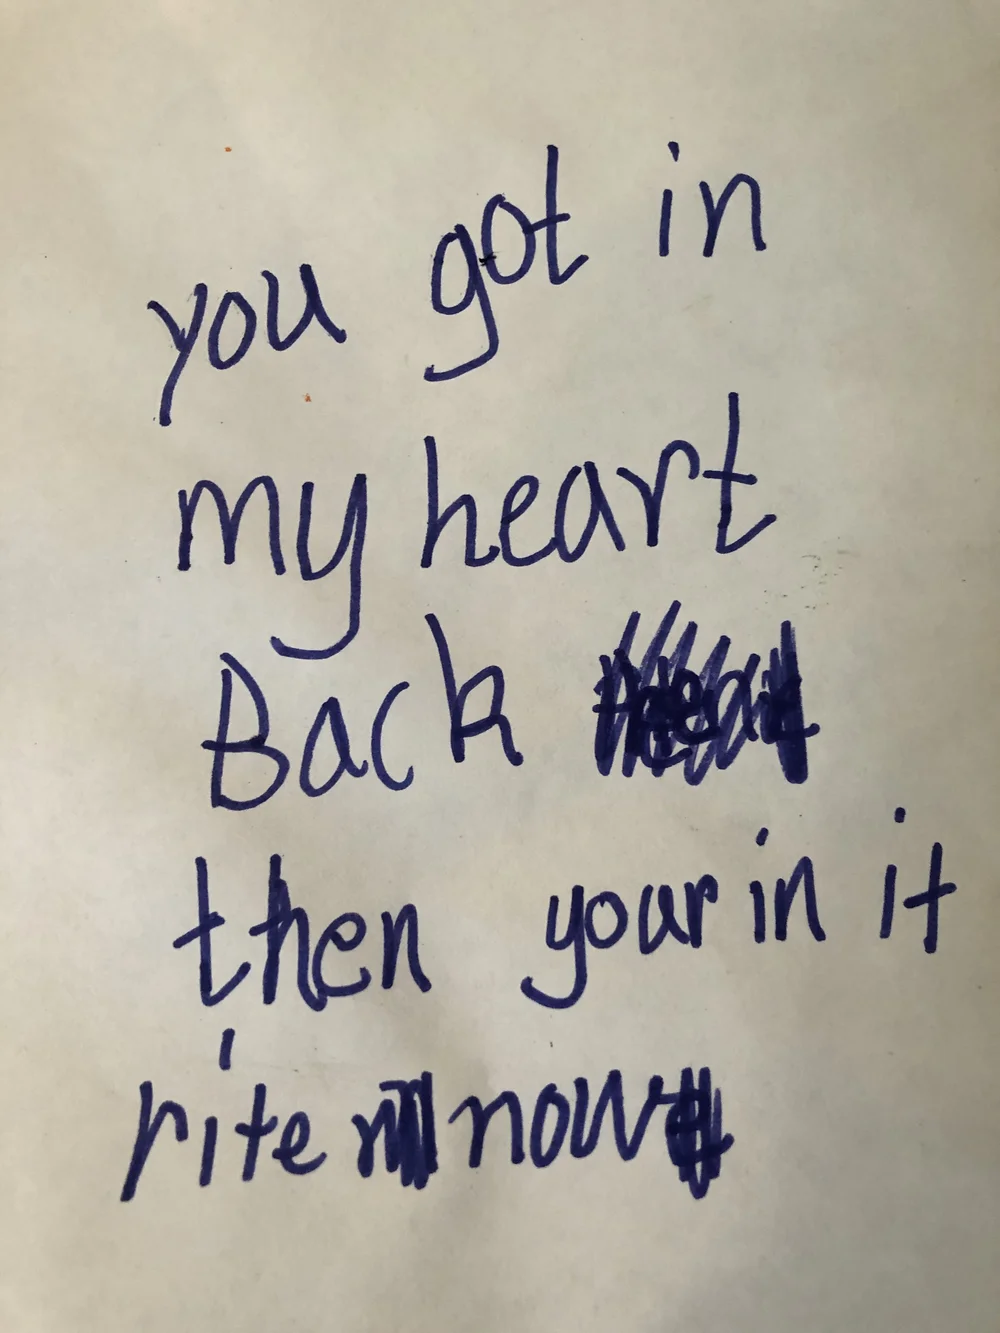 you got in
my heart
Back
then your in it
rite now